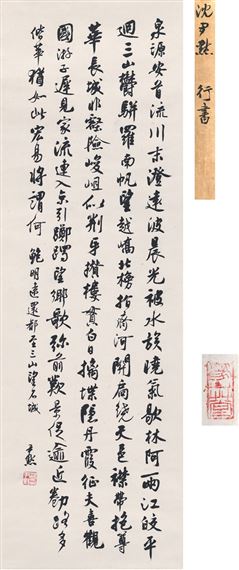 沈尹默 行書
泉源安首流川末澄遠波晨光被水族曉氣歇林阿兩江皎平
迥三山鬱駢羅南帆望越嶠北榜指齊河關扃繞天邑襟帶抱尊
華長城非壑險峻岨似荊牙攢樓貫白日摛堞隱丹霞征夫喜觀
國游子遲見家流連入京引躑躅望鄉歌彌前歎景促逾近勌路多
偕萃猶如此宏易將謂何 鮑明遠還都至三山望石城
尹默